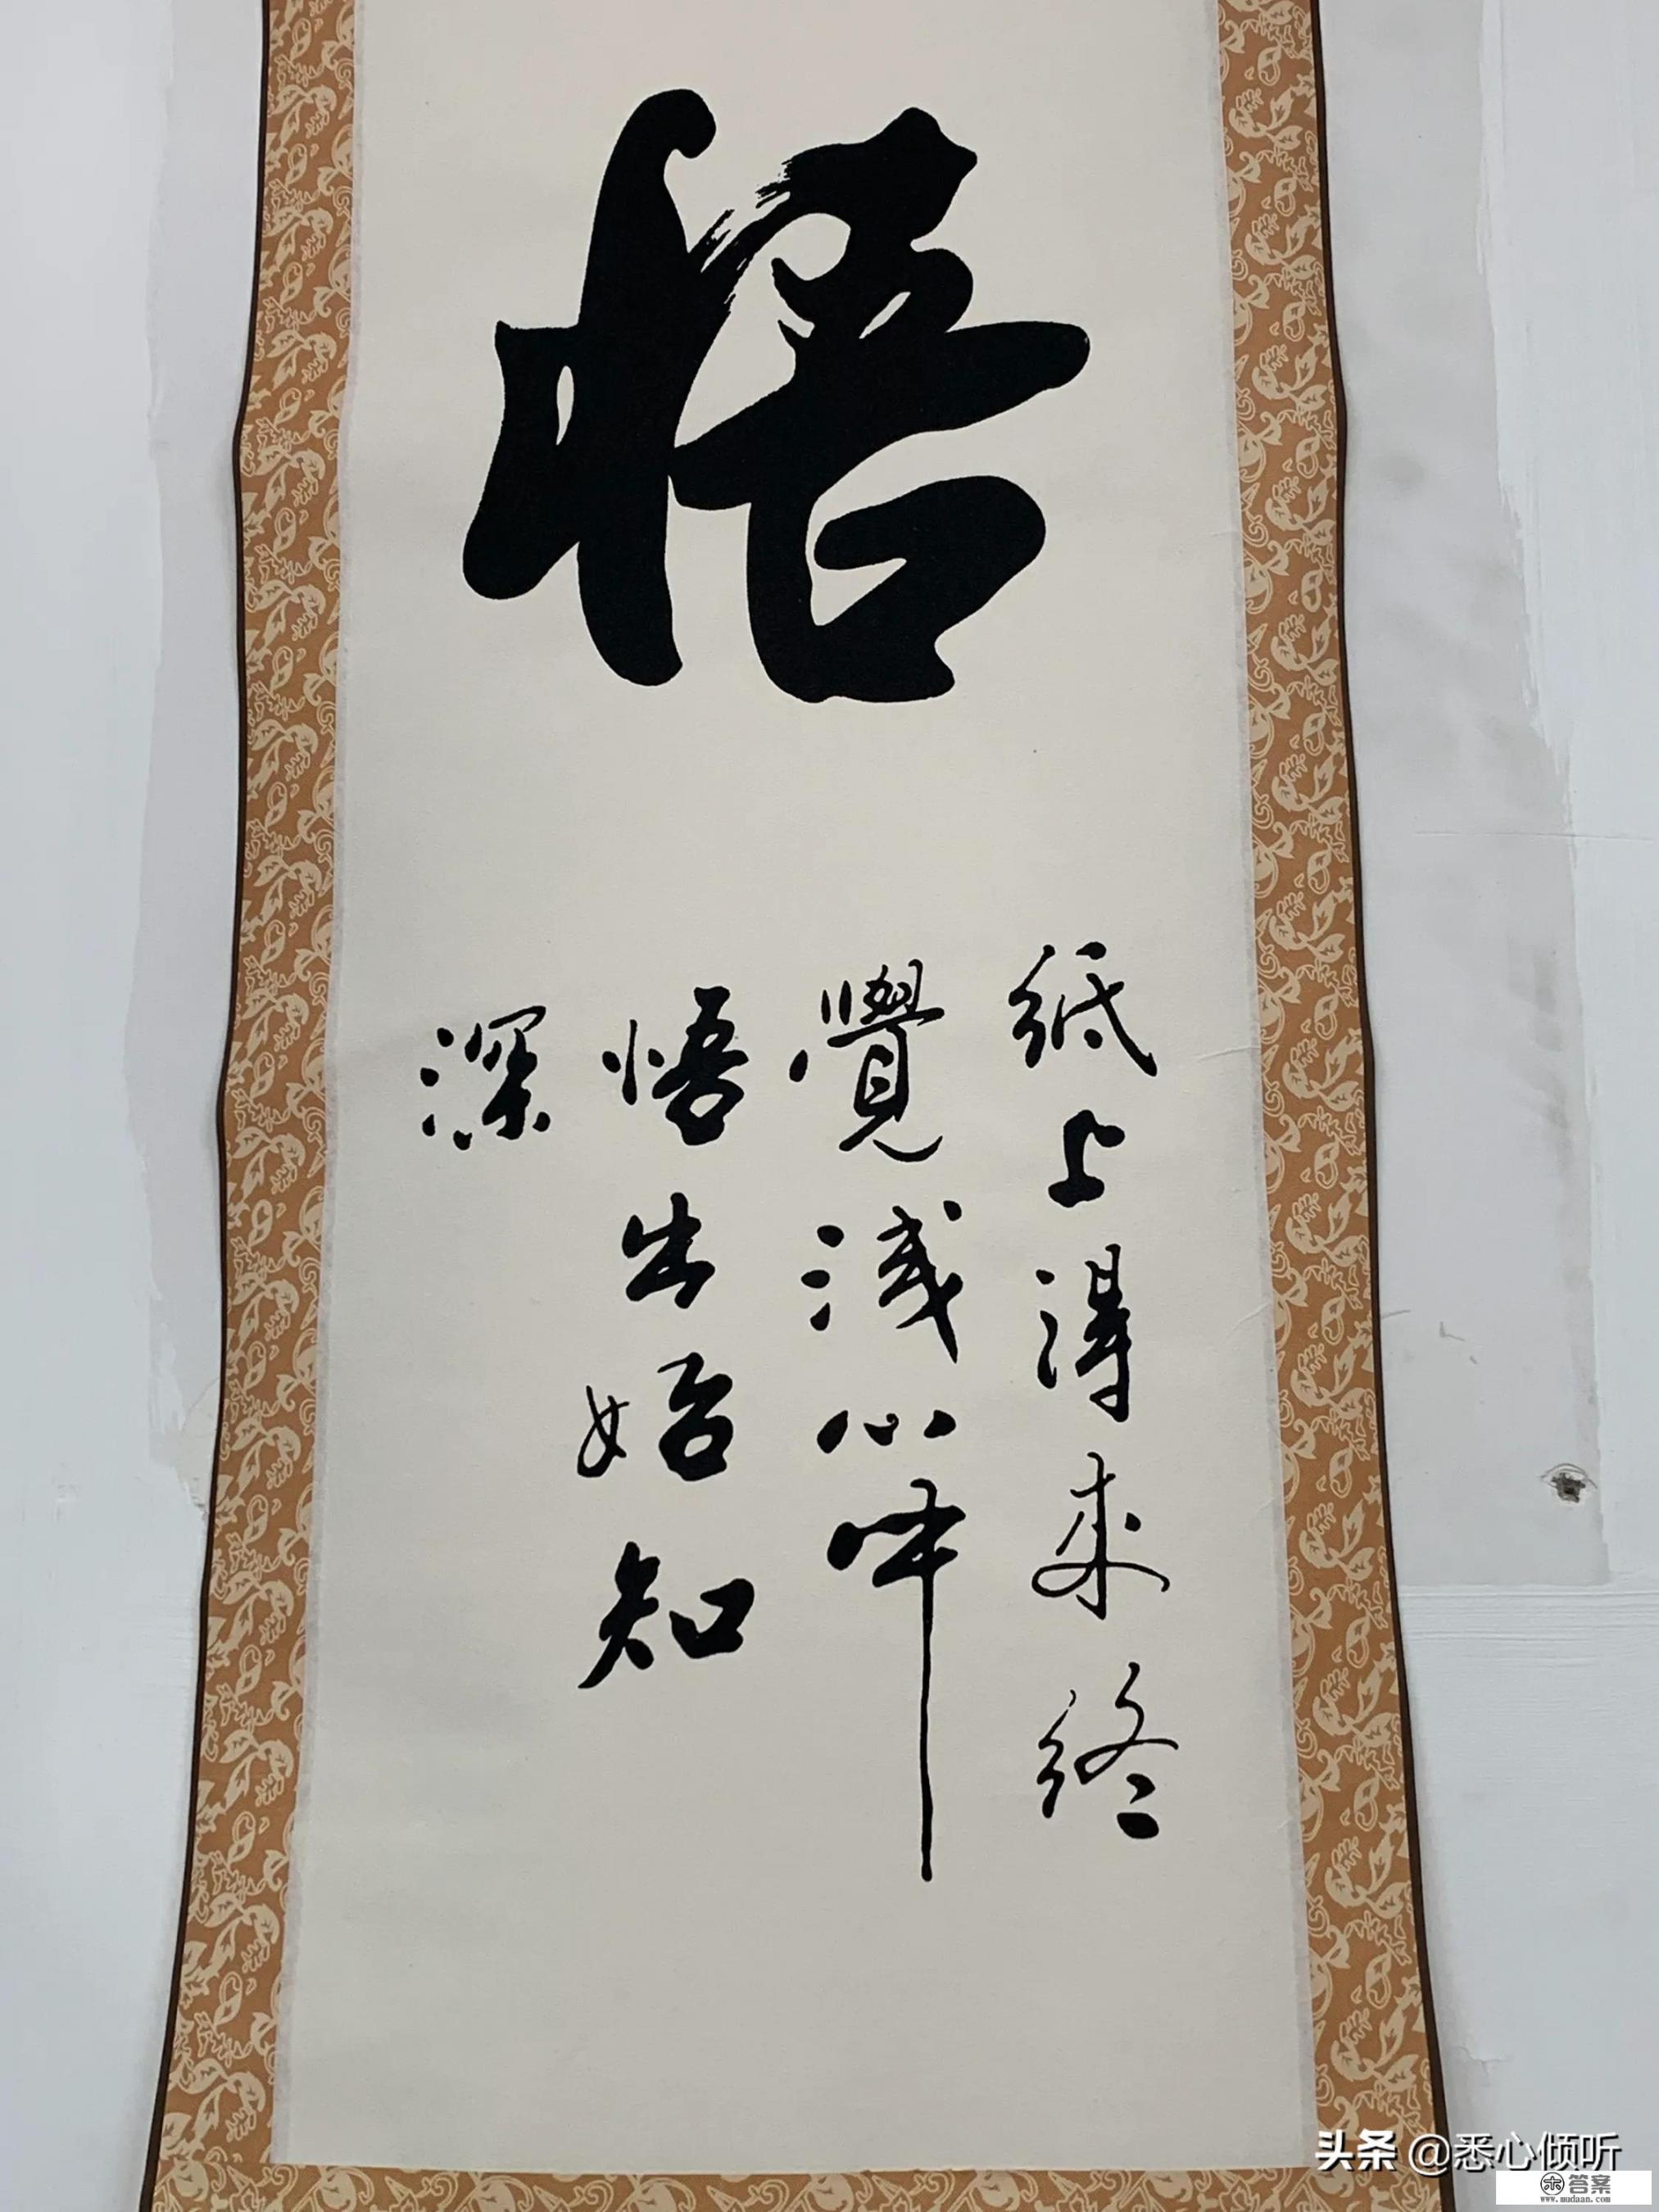 悟
紙上得来終
覺淺心中
悟出始知
深
头条 @悉心倾听
答案
www.mudaan.com